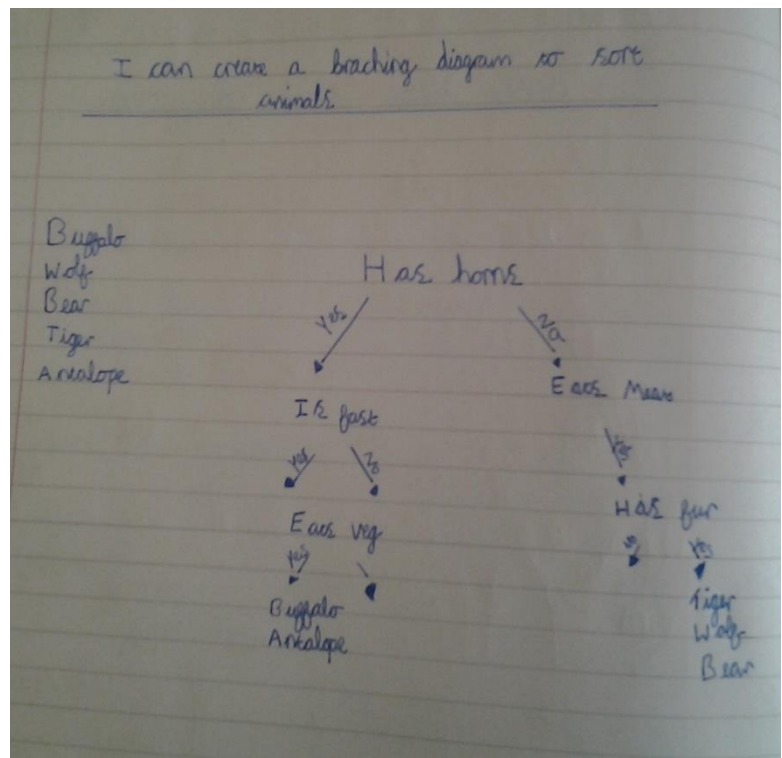 I can create a braching diagram to sort
animals
Buffalo
Wolf
Bear
Tiger
Antalope
Has horns
Yes
No
Is fast
Eats Meat
Yes
No
Yes
Eats veg
Has fur
Yes
No
Yes
Buffalo
Antalope
Tiger
Wolf
Bear